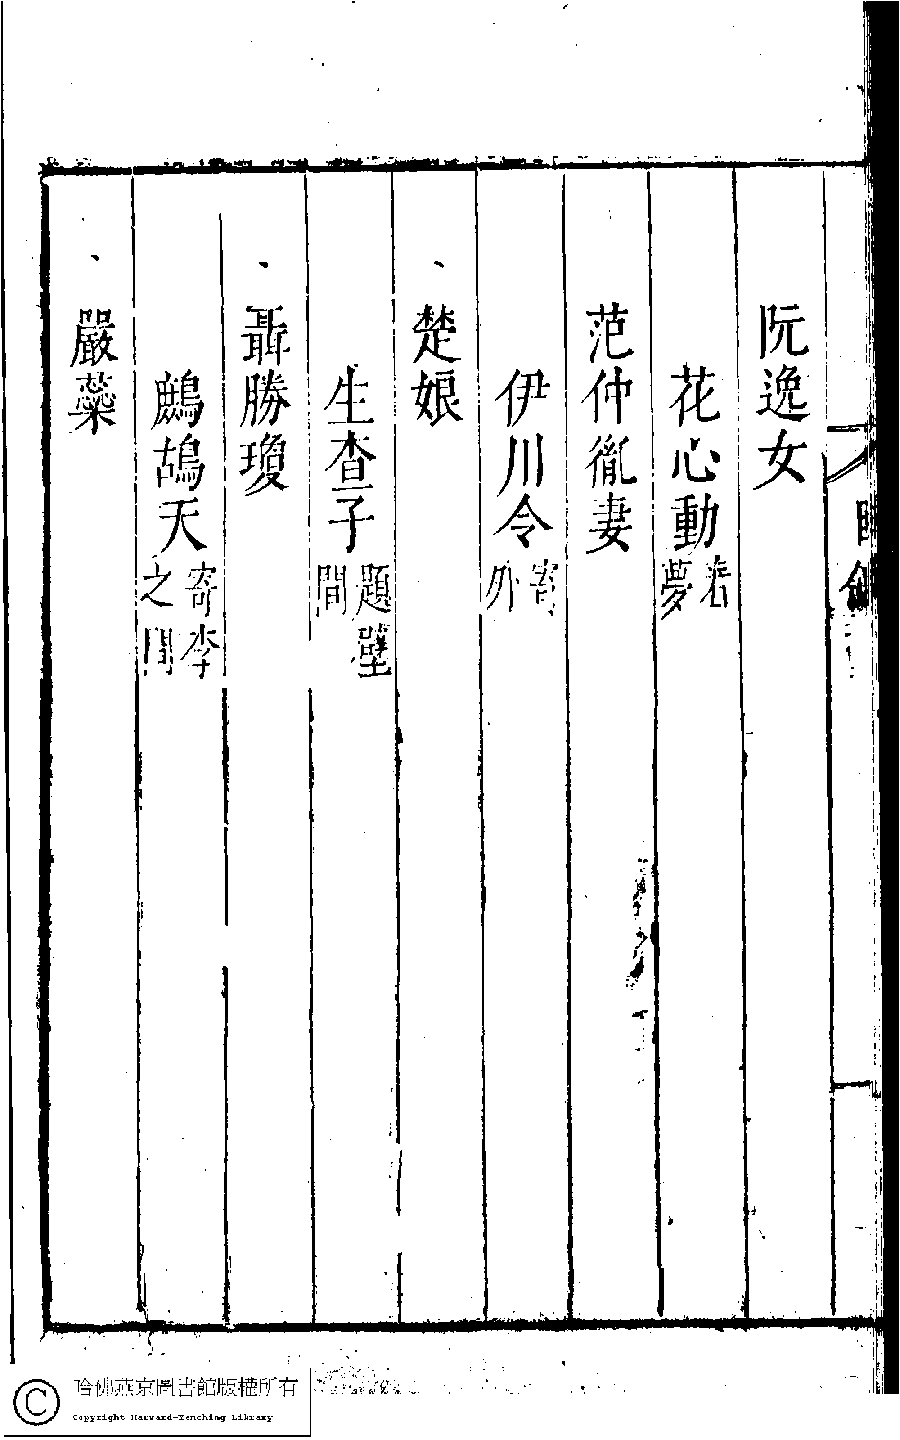 阮逸女
花心動春夢
范仲胤妻
伊川令寄外
楚娘
生查子題壁間
聶勝瓊
鷓鴣天寄李之問
嚴蘂
哈佛燕京圖書館版權所有
Copyright Harvard-Yenching Library